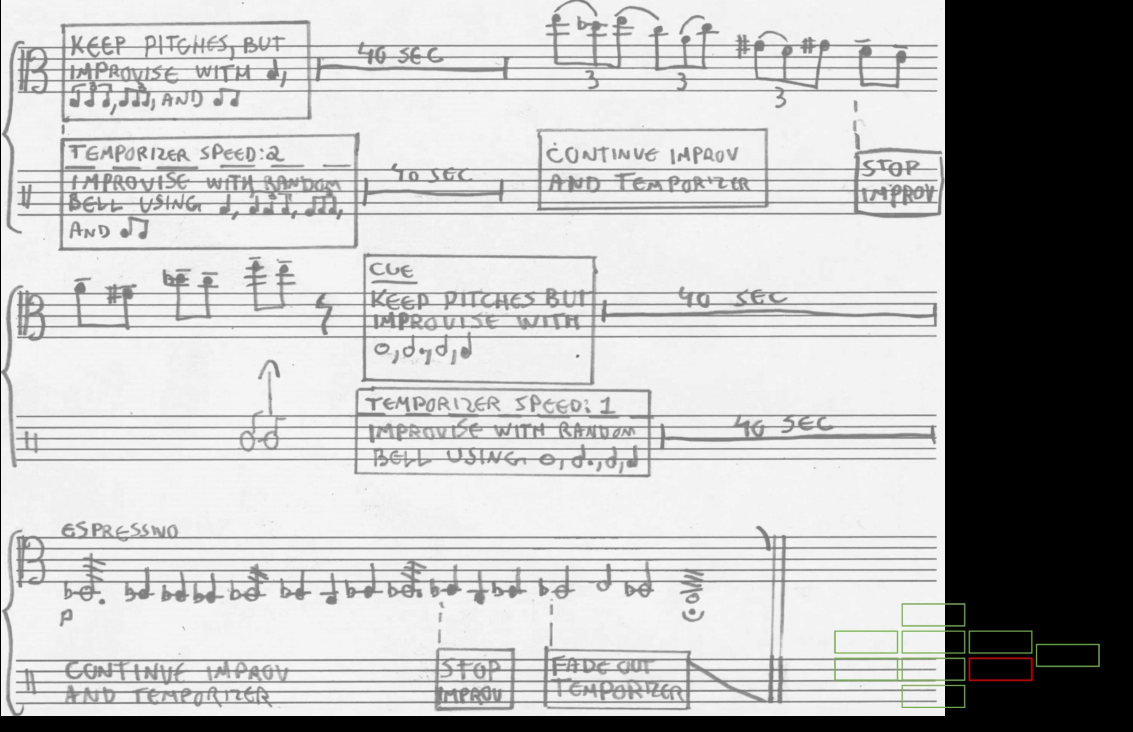 KEEP PITCHES, BUT
IMPROVISE WITH ♩,
♫♪, ♫♪, AND ♫
40 SEC
3
3
3
TEMPORIZER SPEED:2
IMPROVISE WITH RANDOM
BELL USING ♩, ♫♪, ♫♪,
AND ♫
40 SEC
CONTINUE IMPROV
AND TEMPORIZER
STOP
IMPROV
CUE
KEEP PITCHES BUT
IMPROVISE WITH
40 SEC
TEMPORIZER SPEED: 1
IMPROVISE WITH RANDOM
BELL USING
40 SEC
ESPRESSIVO
P
CONTINUE IMPROV
AND TEMPORIZER
STOP
IMPROV
FADE OUT
TEMPORIZER